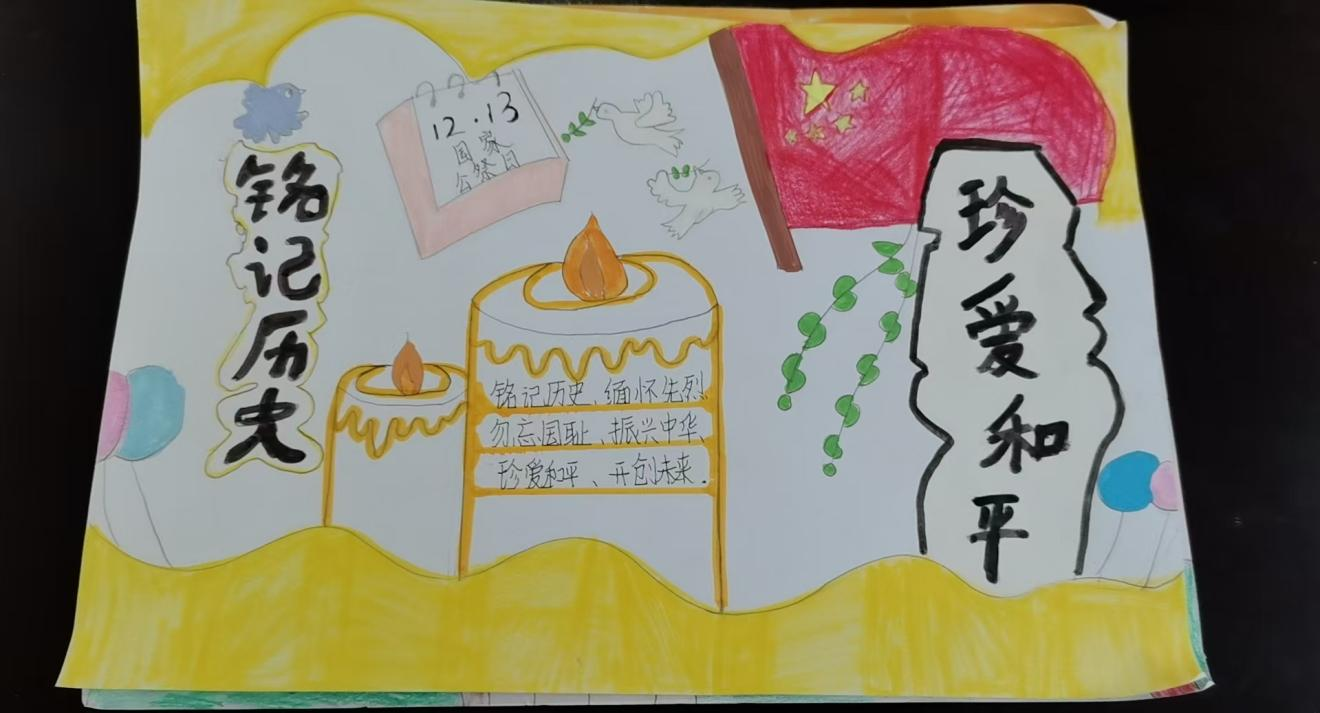 铭记历史
12.13
国家
公祭日
铭记历史、缅怀先烈
勿忘国耻、振兴中华、
珍爱和平、开创未来.
珍爱和平